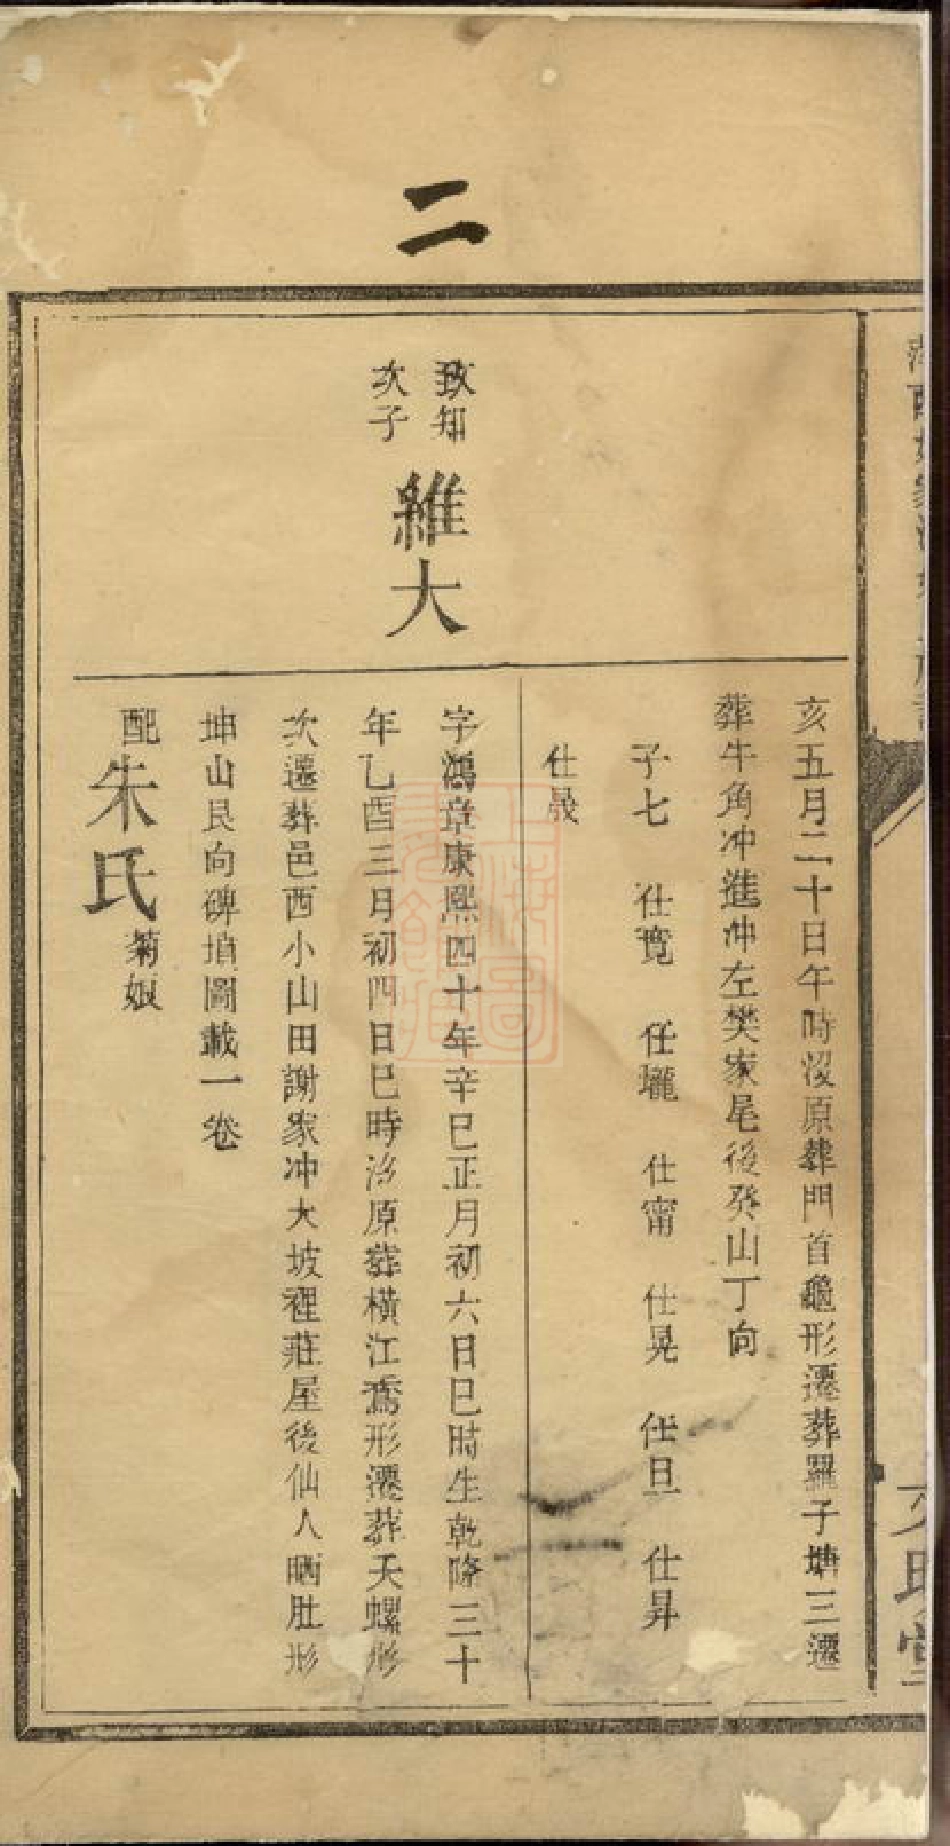 二
亥五月二十日午時沒原葬門首龜形遷葬羅子塘三遷
葬牛角冲進冲左樊家尾後癸山丁向
子七 仕覽 仕瓏 仕甯 仕晃 仕旦 仕昇
仕晟
致知
次子
維大
字鴻章康熙四十年辛巳正月初六日巳時生乾隆三十
年乙酉三月初四日巳時沒原葬橫江鳶形遷葬天螺形
次遷葬邑西小山田謝家冲大坡裡莊屋後仙人晒肚形
坤山艮向碑墳圖載一卷
配朱氏菊娘